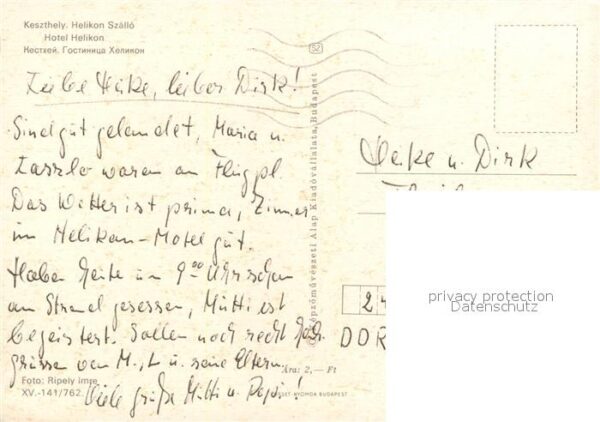 Keszthely. Helikon Szálló
Hotel Helikon
Кестхей. Гостиница Хеликон
Liebe Heike, lieber Dirk!
Sind gut gelandet, Maria u.
Laszlo waren am Flugpl.
Das Wetter ist prima, Zimmer
im Helikon-Motel gut.
Haben heute um 9⁰⁰ Uhr schon
am Strand gesessen, Mutti ist
begeistert. Sollen noch recht
grüssen von M., L. u. seine Eltern.
Viele Grüße Mutti u. Papi!
Foto: Ripely Imre
XV.-141/762.
Ára: 2,— Ft
OFFSET-NYOMDA BUDAPEST
Képzőművészeti Alap Kiadóvállalata, Budapest
SZ
Heike u. Dirk
24
DDR
privacy protection
Datenschutz